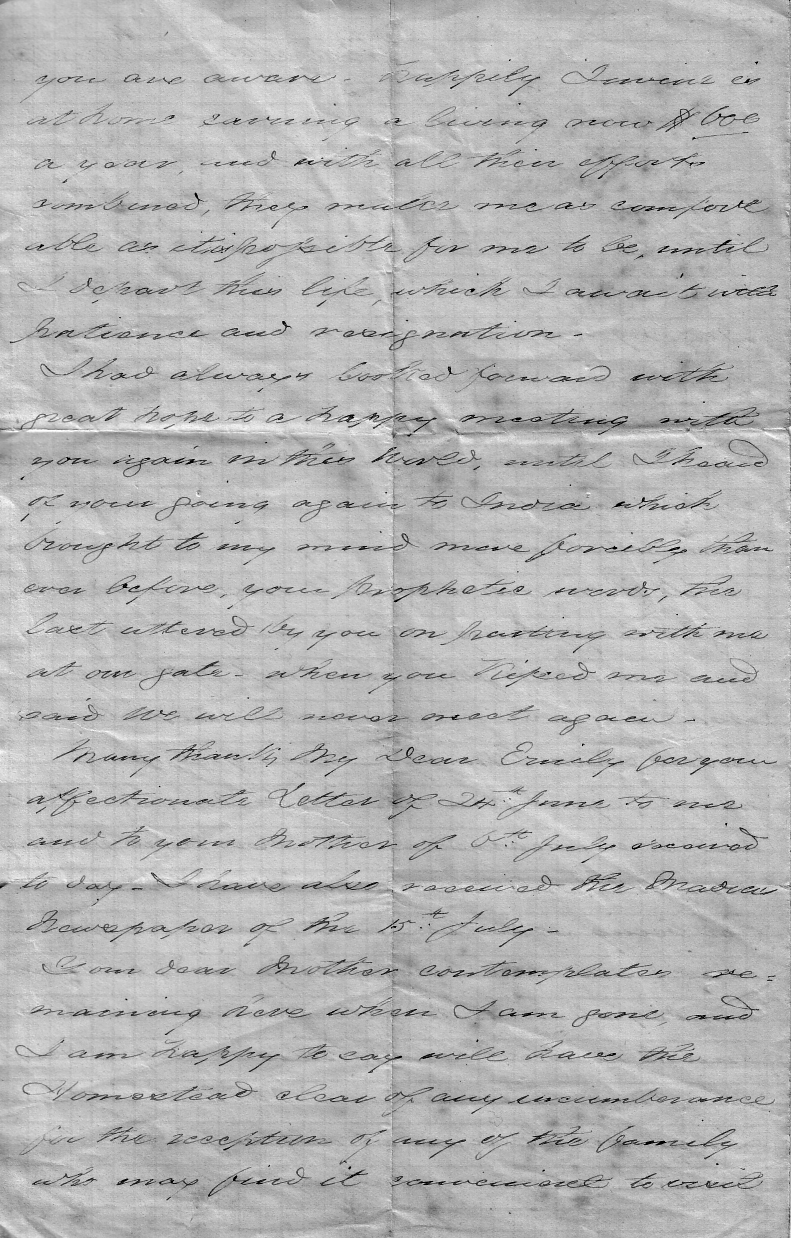 you are aware - happily Irvine is
at home earning a living now $600
a year, and with all their efforts
combined, they make me as comfort
able as it is possible for me to be, until
I depart this life, which I await with
patience and resignation -
I had always looked forward with
great hope to a happy meeting with
you again in this World, until I heard
of your going again to India which
brought to my mind more forcibly than
ever before, your prophetic words, the
last uttered by you on parting with me
at our gate - when you kissed me and
said We will never meet again -
Many thanks My Dear Emily for your
affectionate Letter of 24th June to me
and to your Mother of 6th July received
to day - I have also received the Madras
Newspaper of the 15th July -
Your dear Mother contemplates re=
maining here when I am gone, and
I am happy to say will have the
Homestead clear of any incumberance
for the reception of any of the family
who may find it convenient to visit